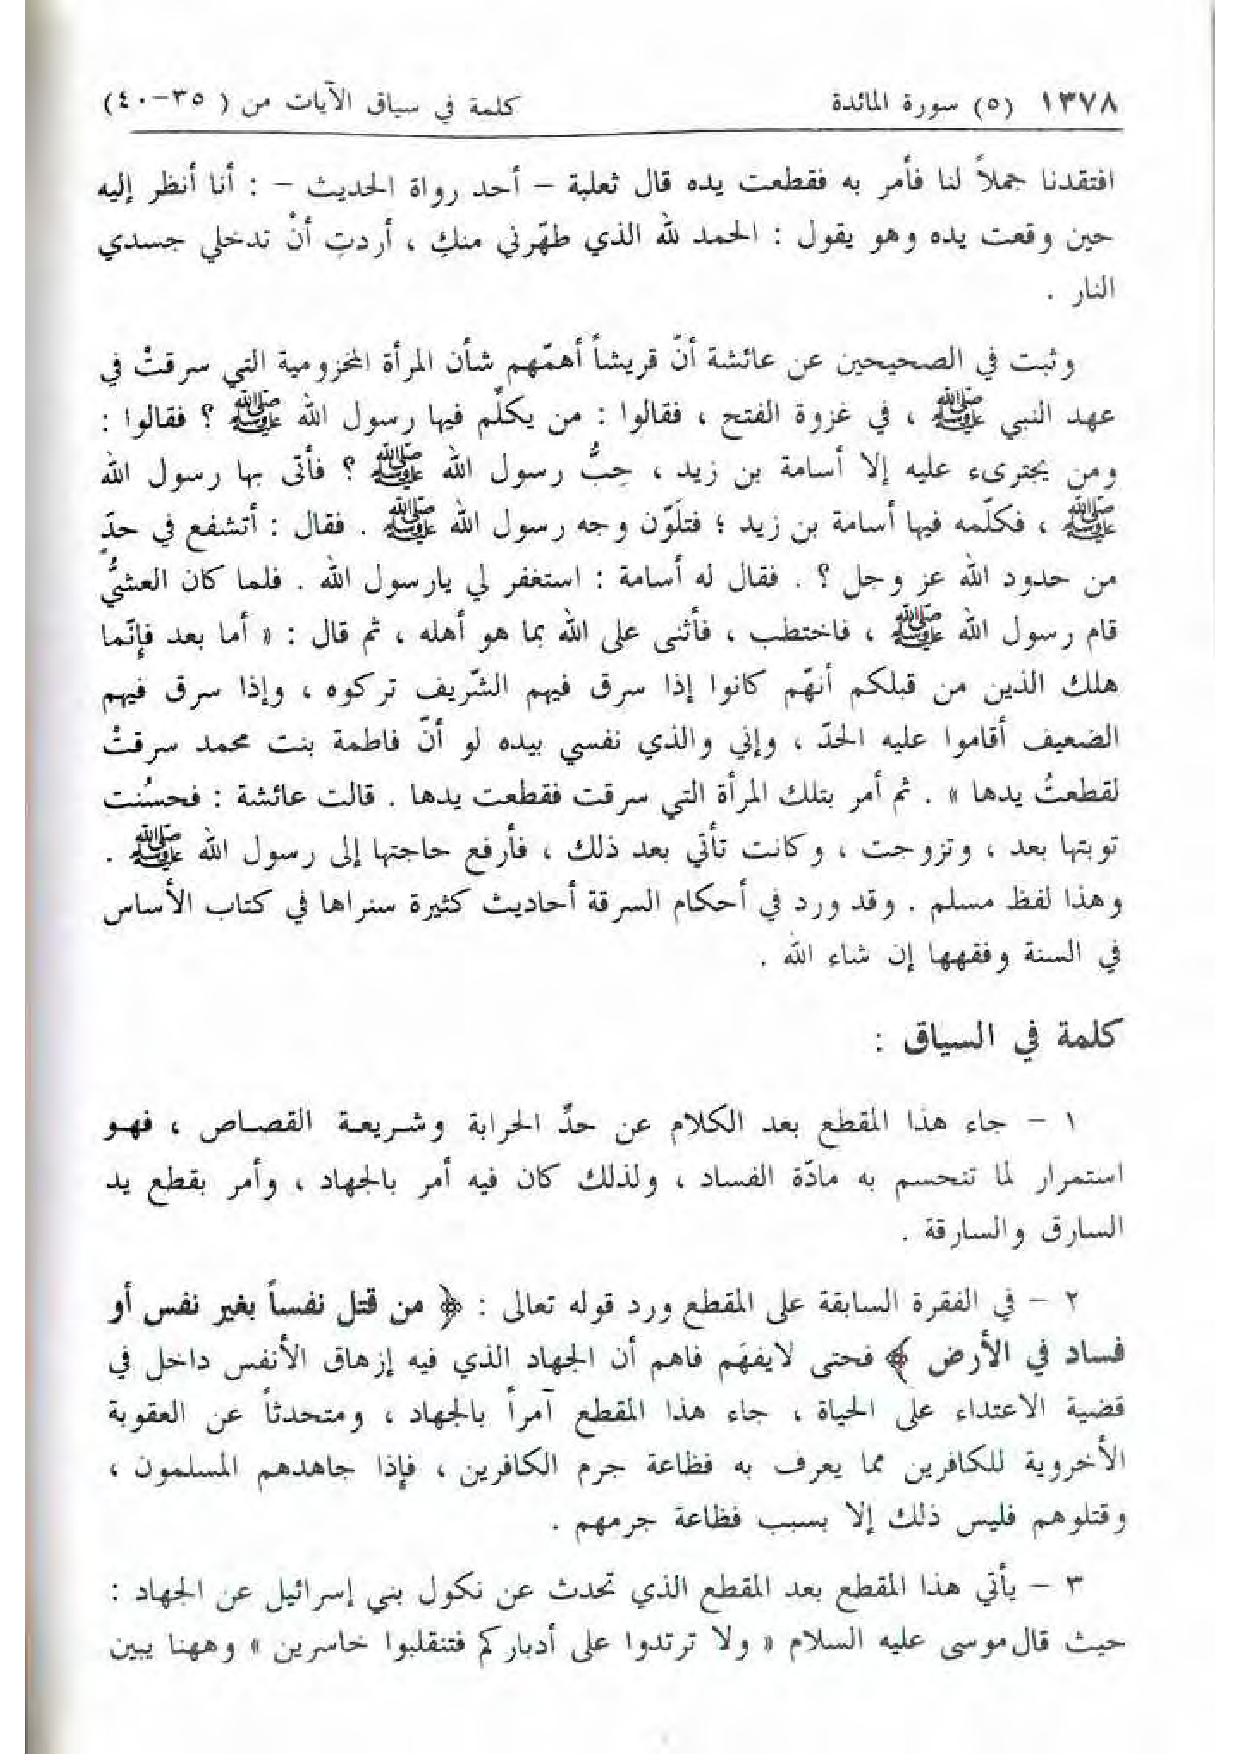 ١٣٧٨ (٥) سورة المائدة كلمة في سياق الآيات من (٣٥-٤٠)
افتقدنا جملاً لنا فأمر به فقطعت يده قال ثعلبة – أحد رواة الحديث – : أنا أنظر إليه
حين وقعت يده وهو يقول : الحمد لله الذي طهّرني منكِ ، أردتِ أنْ تدخلي جسدي
النار .
وثبت في الصحيحين عن عائشة أنّ قريشاً أهمّهم شأن المرأة المخزومية التي سرقتْ في
عهد النبي ﷺ ، في غزوة الفتح ، فقالوا : من يكلّم فيها رسول الله ﷺ ؟ فقالوا :
ومن يجترىء عليه إلا أسامة بن زيد ، حِبُّ رسول الله ﷺ ؟ فأتى بها رسول الله
ﷺ ، فكلّمه فيها أسامة بن زيد ؛ فتلَوّن وجه رسول الله ﷺ . فقال : أتشفع في حدّ
من حدود الله عز وجل ؟ . فقال له أسامة : استغفر لي يارسول الله . فلما كان العشيُّ
قام رسول الله ﷺ ، فاختطب ، فأثنى على الله بما هو أهله ، ثم قال : « أما بعد فإنّما
هلك الذين من قبلكم أنهّم كانوا إذا سرق فيهم الشّريف تركوه ، وإذا سرق فيهم
الضعيف أقاموا عليه الحدّ ، وإني والذي نفسي بيده لو أنّ فاطمة بنت محمد سرقتْ
لقطعتُ يدها » . ثم أمر بتلك المرأة التي سرقت فقطعت يدها . قالت عائشة : فحسُنت
توبتها بعد ، وتزوجت ، وكانت تأتي بعد ذلك ، فأرفع حاجتها إلى رسول الله ﷺ .
وهذا لفظ مسلم . وقد ورد في أحكام السرقة أحاديث كثيرة سنراها في كتاب الأساس
في السنة وفقهها إن شاء الله .
كلمة في السياق :
١ – جاء هذا المقطع بعد الكلام عن حدِّ الحرابة وشريعة القصاص ، فهو
استمرار لما تنحسم به مادّة الفساد ، ولذلك كان فيه أمر بالجهاد ، وأمر بقطع يد
السارق والسارقة .
٢ – في الفقرة السابقة على المقطع ورد قوله تعالى : ﴿ من قتل نفساً بغير نفس أو
فساد في الأرض ﴾ فحتى لايفهَم فاهم أن الجهاد الذي فيه إزهاق الأنفس داخل في
قضية الاعتداء على الحياة ، جاء هذا المقطع آمراً بالجهاد ، ومتحدثاً عن العقوبة
الأخروية للكافرين مما يعرف به فظاعة جرم الكافرين ، فإذا جاهدهم المسلمون ،
وقتلوهم فليس ذلك إلا بسبب فظاعة جرمهم .
٣ – يأتي هذا المقطع بعد المقطع الذي تحدث عن نكول بني إسرائيل عن الجهاد :
حيث قال موسى عليه السلام « ولا ترتدوا على أدباركم فتنقلبوا خاسرين » وههنا يبين